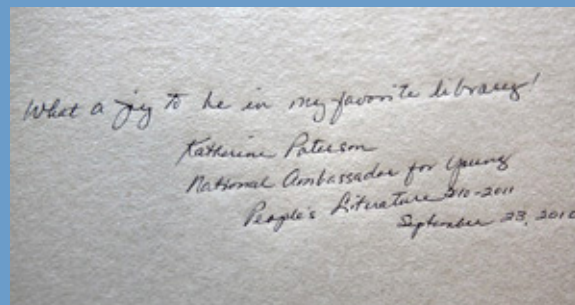 What a joy to be in my favorite library!
Katherine Paterson
National Ambassador for Young
People's Literature 210-2011
September 23, 2010